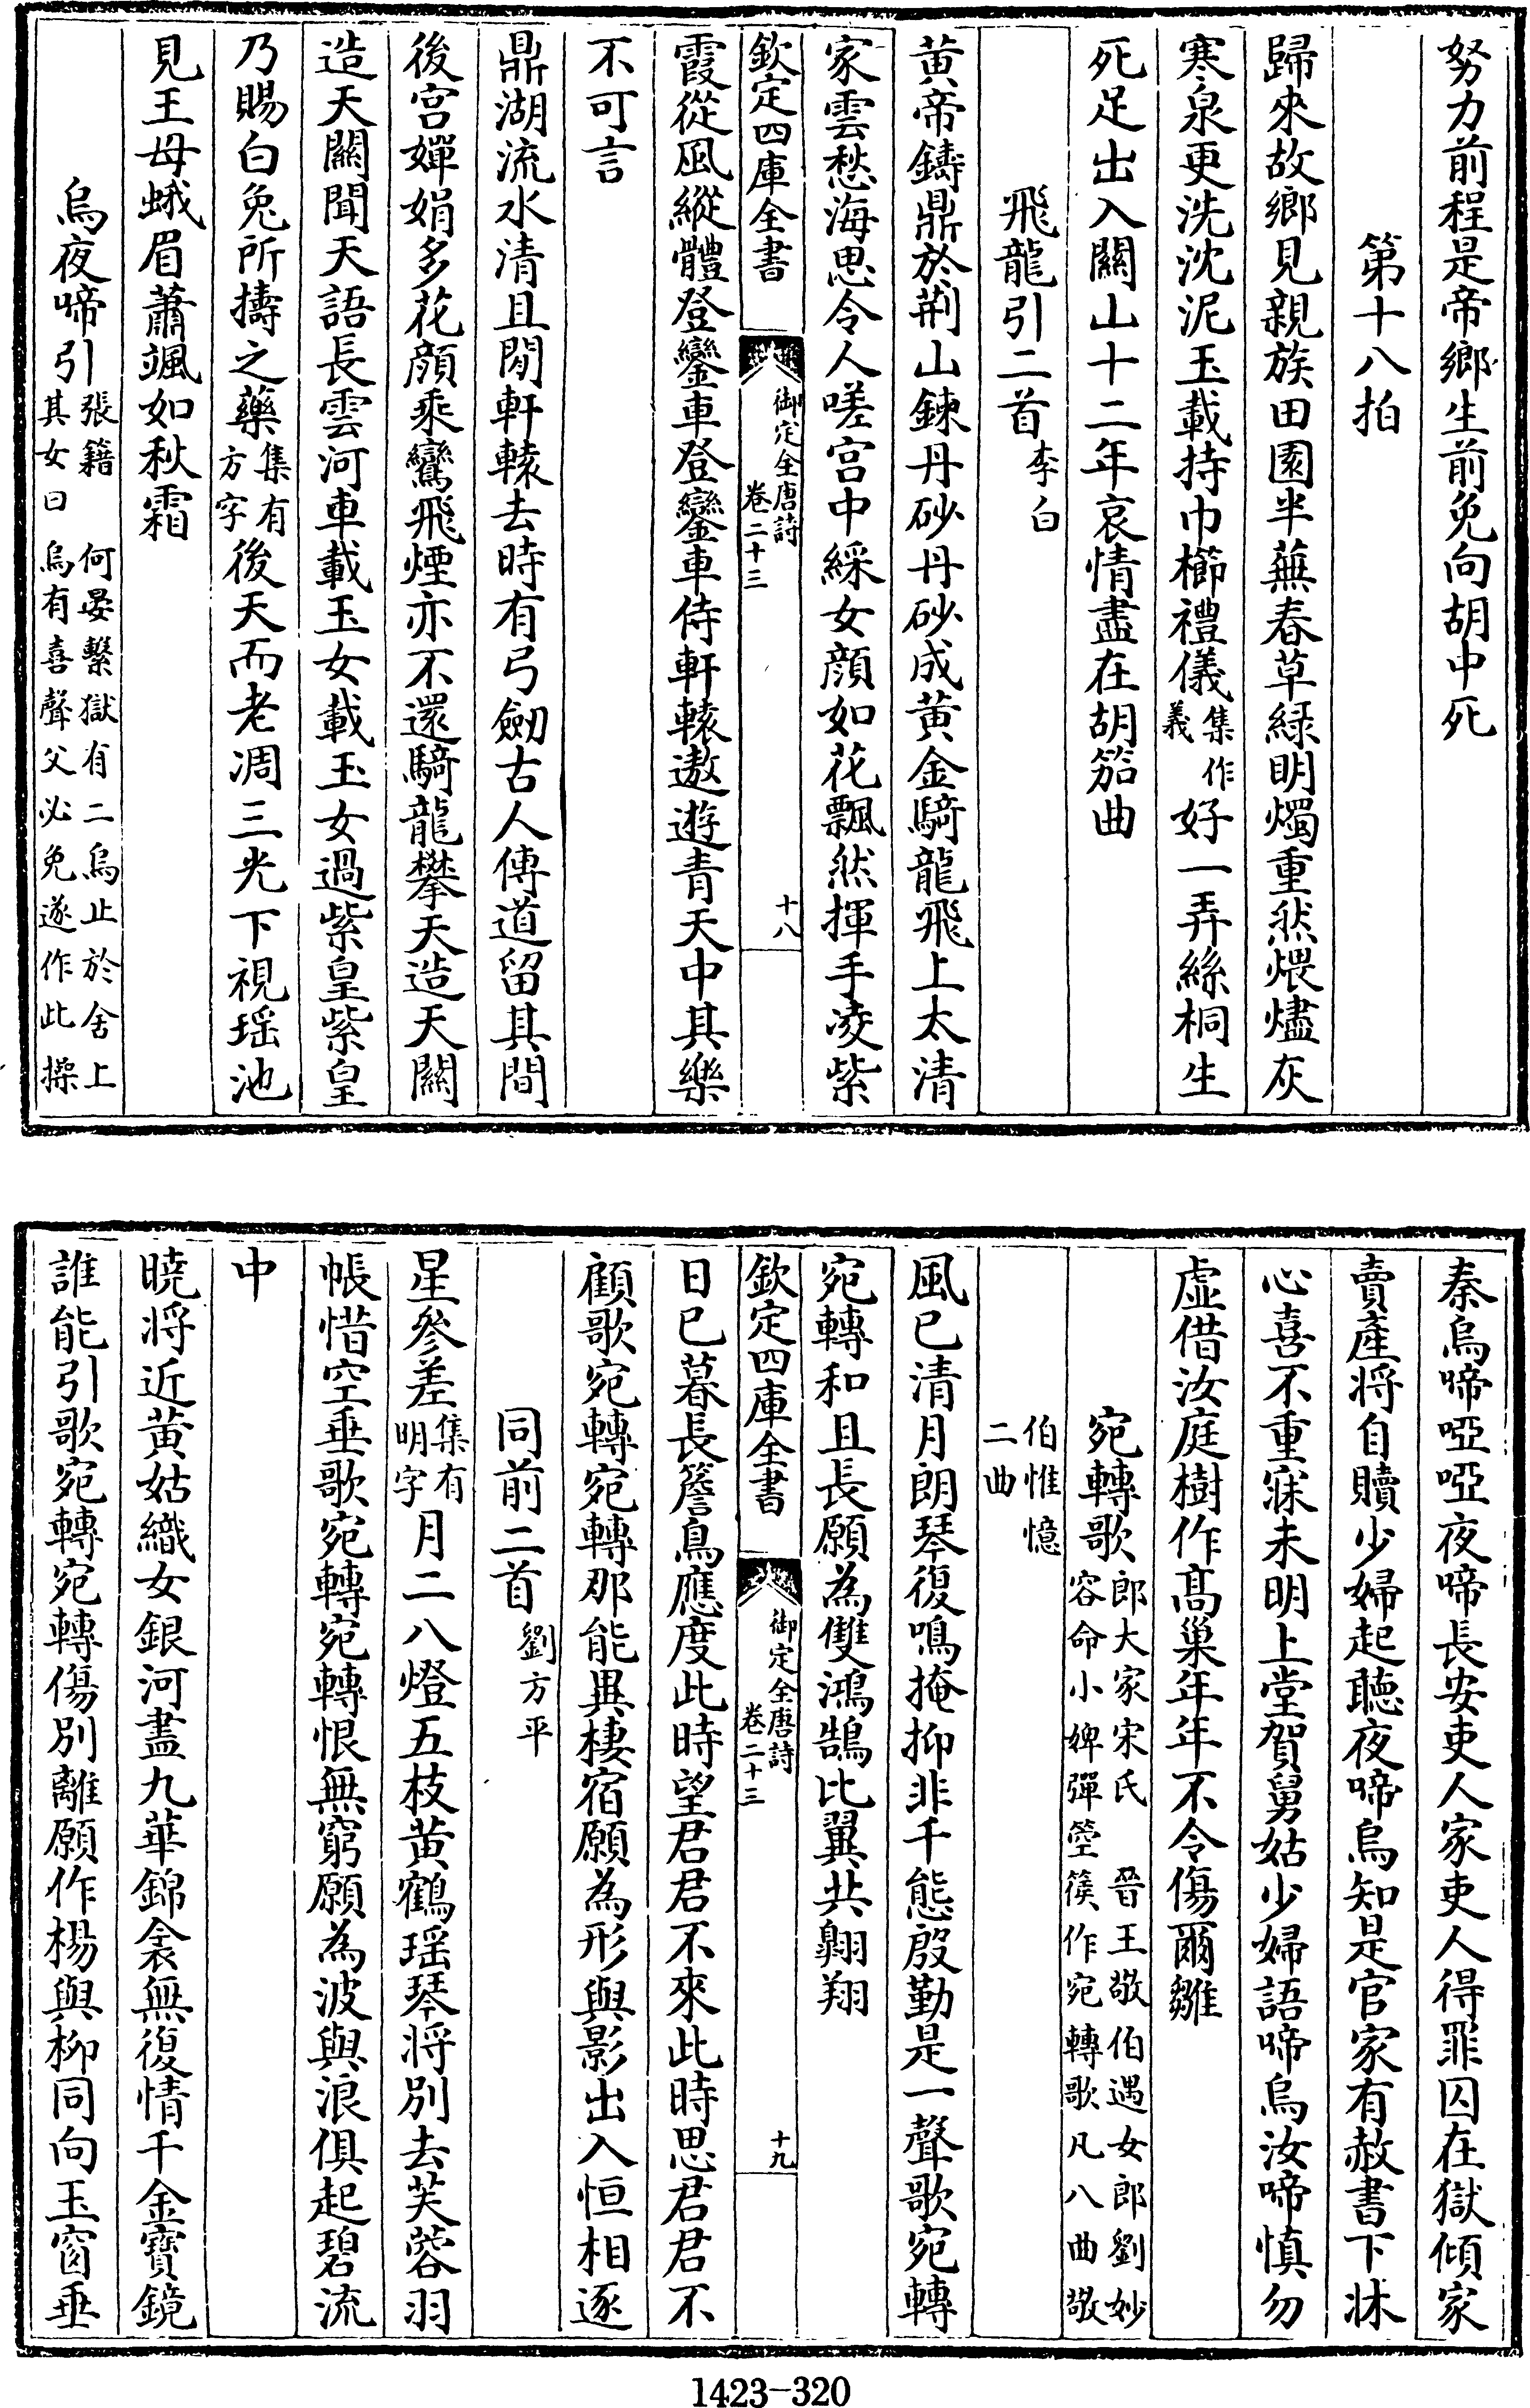 努力前程是帝鄉生前免向胡中死
第十八拍
歸來故鄉見親族田園半蕪春草緑明燭重然煨燼灰
寒泉更洗沈泥玉載持巾櫛禮儀集作義好一弄絲桐生
死足出入關山十二年哀情盡在胡笳曲
飛龍引二首李白
黄帝鑄鼎於荆山鍊丹砂丹砂成黄金騎龍飛上太清
家雲愁海思令人嗟宫中綵女顔如花飄然揮手凌紫
欽定四庫全書
御定全唐詩
卷二十三
十八
霞從風縱體登鑾車登鑾車侍軒轅遨遊青天中其樂
不可言
鼎湖流水清且閒軒轅去時有弓劒古人傳道留其間
後宫嬋娟多花顔乘鸞飛煙亦不還騎龍攀天造天關
造天關聞天語長雲河車載玉女載玉女過紫皇紫皇
乃賜白兔所擣之藥集有方字後天而老凋三光下視瑶池
見王母蛾眉蕭颯如秋霜
烏夜啼引張籍 何晏繫獄有二烏止於舍上
其女曰烏有喜聲父必免遂作此操
秦烏啼啞啞夜啼長安吏人家吏人得罪囚在獄傾家
賣產將自贖少婦起聽夜啼烏知是官家有赦書下牀
心喜不重寐未明上堂賀舅姑少婦語啼烏汝啼慎勿
虚借汝庭樹作髙巢年年不令傷爾雛
宛轉歌郎大家宋氏 晉王敬伯遇女郎劉妙
容命小婢彈箜篌作宛轉歌凡八曲敬
伯惟憶
二曲
風已清月朗琴復鳴掩抑非千態殷勤是一聲歌宛轉
宛轉和且長願為雙鴻鵠比翼共翺翔
欽定四庫全書
御定全唐詩
卷二十三
十九
日已暮長簷鳥應度此時望君君不來此時思君君不
顧歌宛轉宛轉那能異棲宿願為形與影出入恒相逐
同前二首劉方平
星參差集有明字月二八燈五枝黄鶴瑶琴將別去芙蓉羽
帳惜空垂歌宛轉宛轉恨無窮願為波與浪俱起碧流
中
曉將近黄姑織女銀河盡九華錦衾無復情千金寳鏡
誰能引歌宛轉宛轉傷別離願作楊與柳同向玉窗垂
1423-320